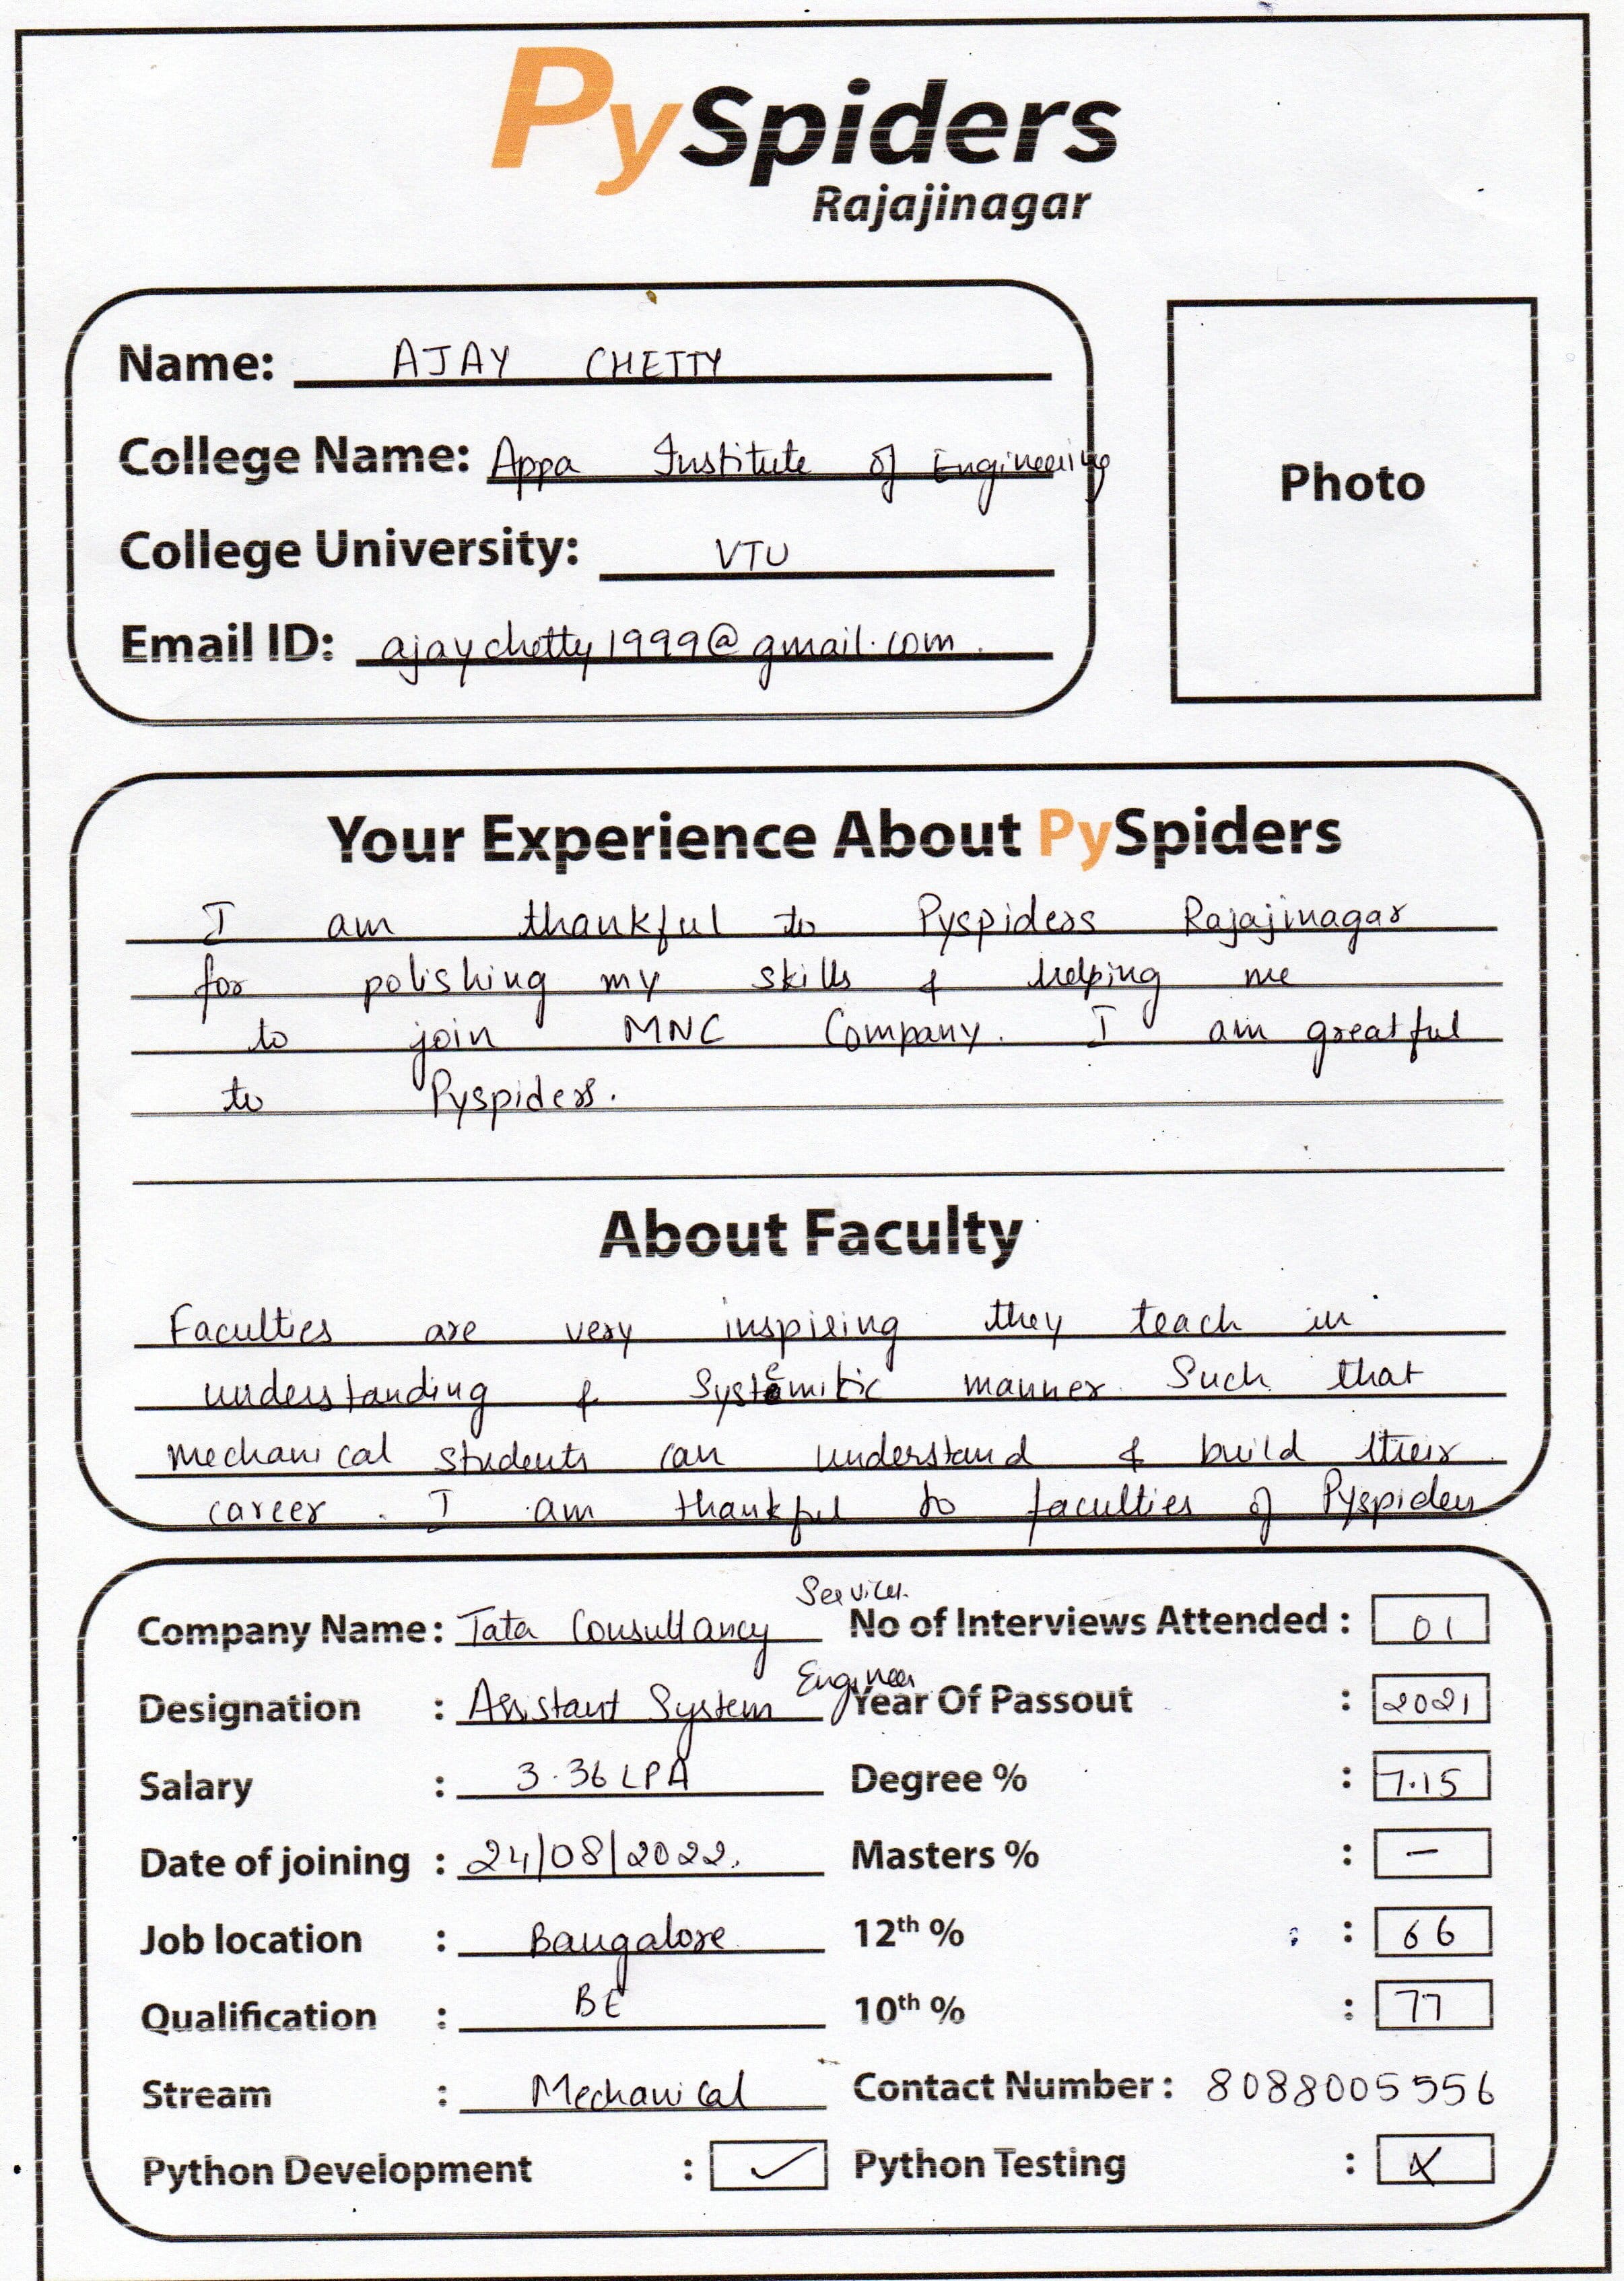 PySpiders
Rajajinagar
Name: AJAY CHETTY
College Name: Appa Institute of Engineering
College University: VTU
Email ID: ajaychetty1999@gmail.com.
Photo
Your Experience About PySpiders
I am thankful to Pyspiders Rajajinagar
for polishing my skills & helping me
to join MNC Company. I am greatful
to Pyspiders.
About Faculty
Faculties are very inspiring they teach in
understanding & Systemitic manner Such that
mechanical students can understand & build their
career. I am thankful to faculties of Pyspiders
Company Name: Tata Consultancy Services No of Interviews Attended : 01
Designation : Assistant System Engineer Year Of Passout : 2021
Salary : 3.36 LPA Degree % : 7.15
Date of joining : 24/08/2022. Masters % : –
Job location : Bangalore 12th % : 66
Qualification : BE 10th % : 77
Stream : Mechanical Contact Number : 8088005556
Python Development : ✓ Python Testing : X